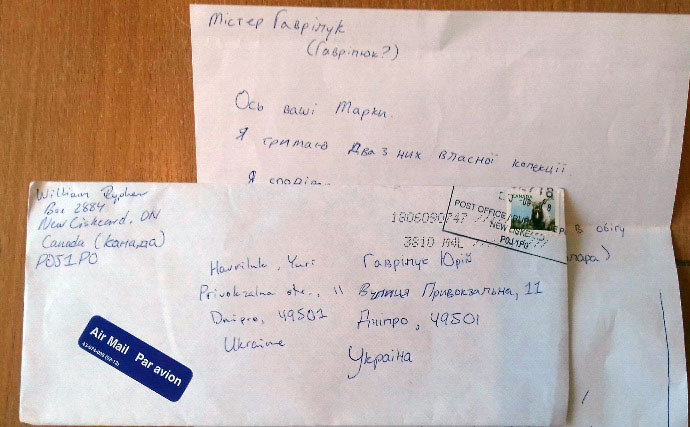 Містер Гаврілук
(Гаврілюк?)
Ось ваші Марки.
Я тримаю Два з них власної колекції
Я
в обігу
William
Box 2884
New Liskeard, ON
Canada (Канада)
P0J1P0
1806080747
3810 M4L
POST OFFICE
NEW
P0J1P0
Havriluk, Yuri
Privokzalna str., 11
Dnipro, 49501
Ukraine
Гаврілук Юрій
Вулиця Привокзальна, 11
Дніпро, 49501
Україна
Air Mail Par avion